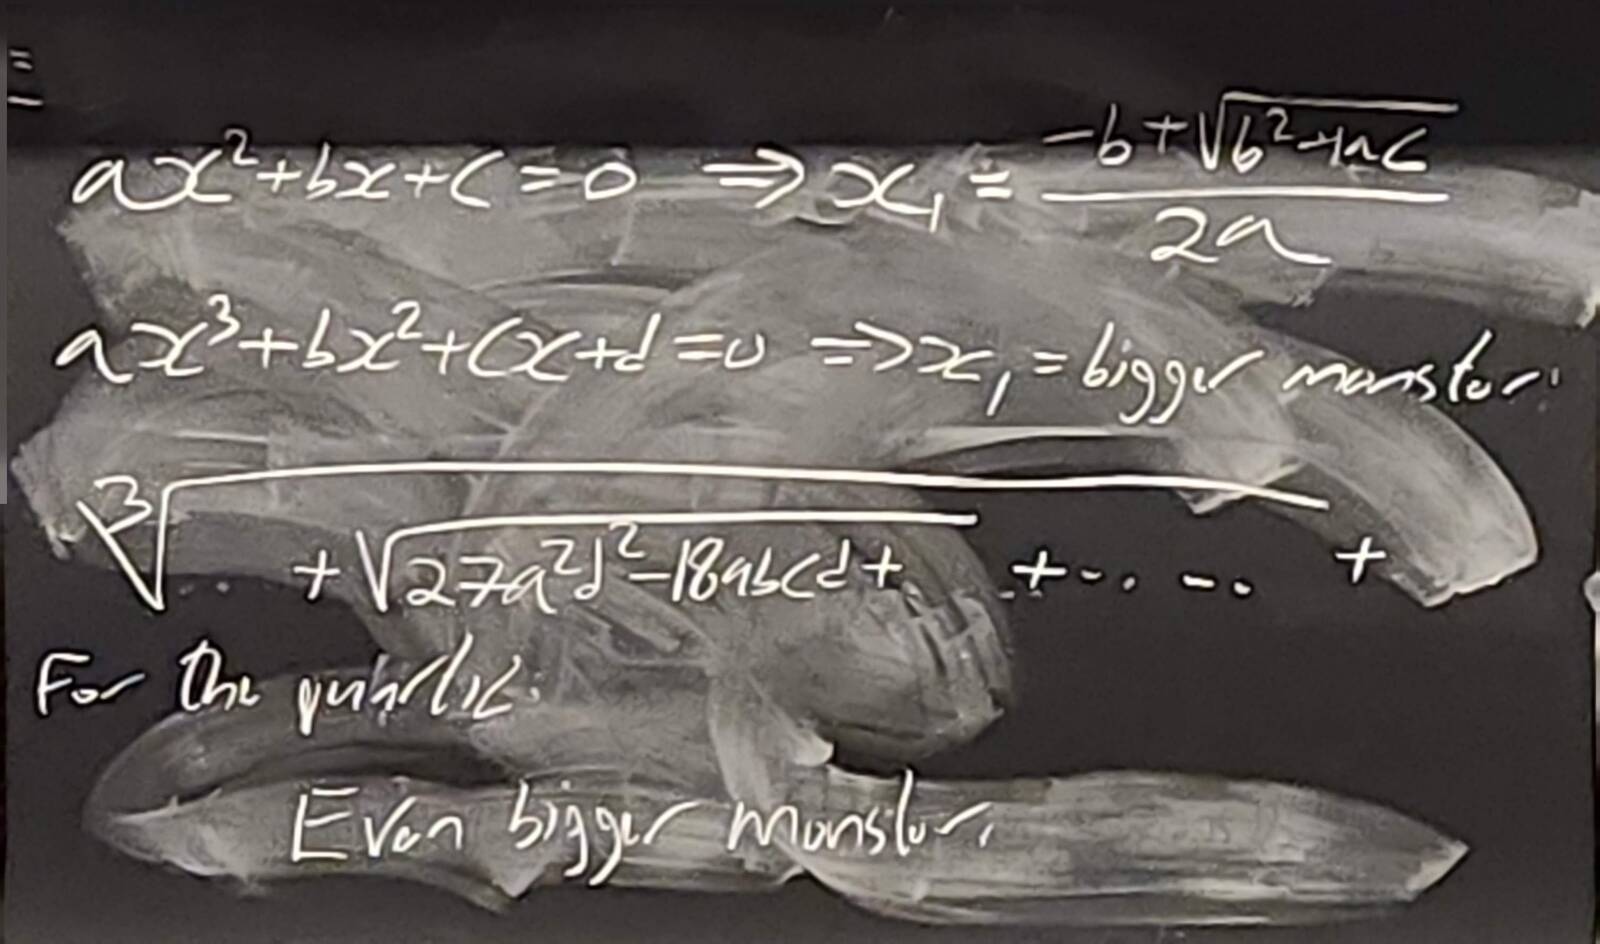 =
ax²+bx+c=0 ⇒ x₁ = (-b+√(b²-4ac))/(2a)
ax³+bx²+cx+d=0 ⇒ x₁ = bigger monster:
∛( +√(27a²d²-18abcd+ ) +·.. -.. ) +
For the quartic.
Even bigger monster.